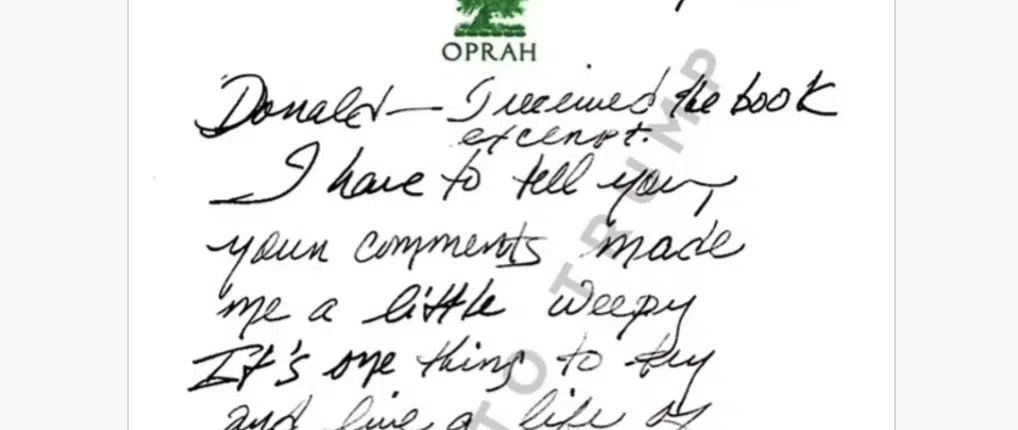 OPRAH
Donald— I received the book
excerpt.
I have to tell you,
your comments made
me a little weepy
It's one thing to try
and live a life of
TO TRUMP